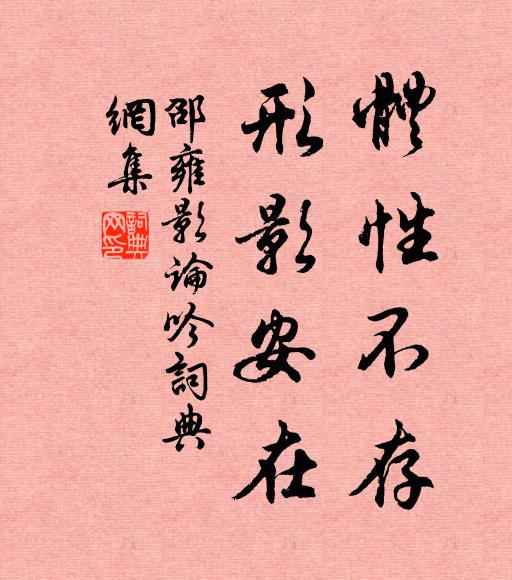 體性不存
形影安在
邵雍影論吟詞典
網集
詞典
网印